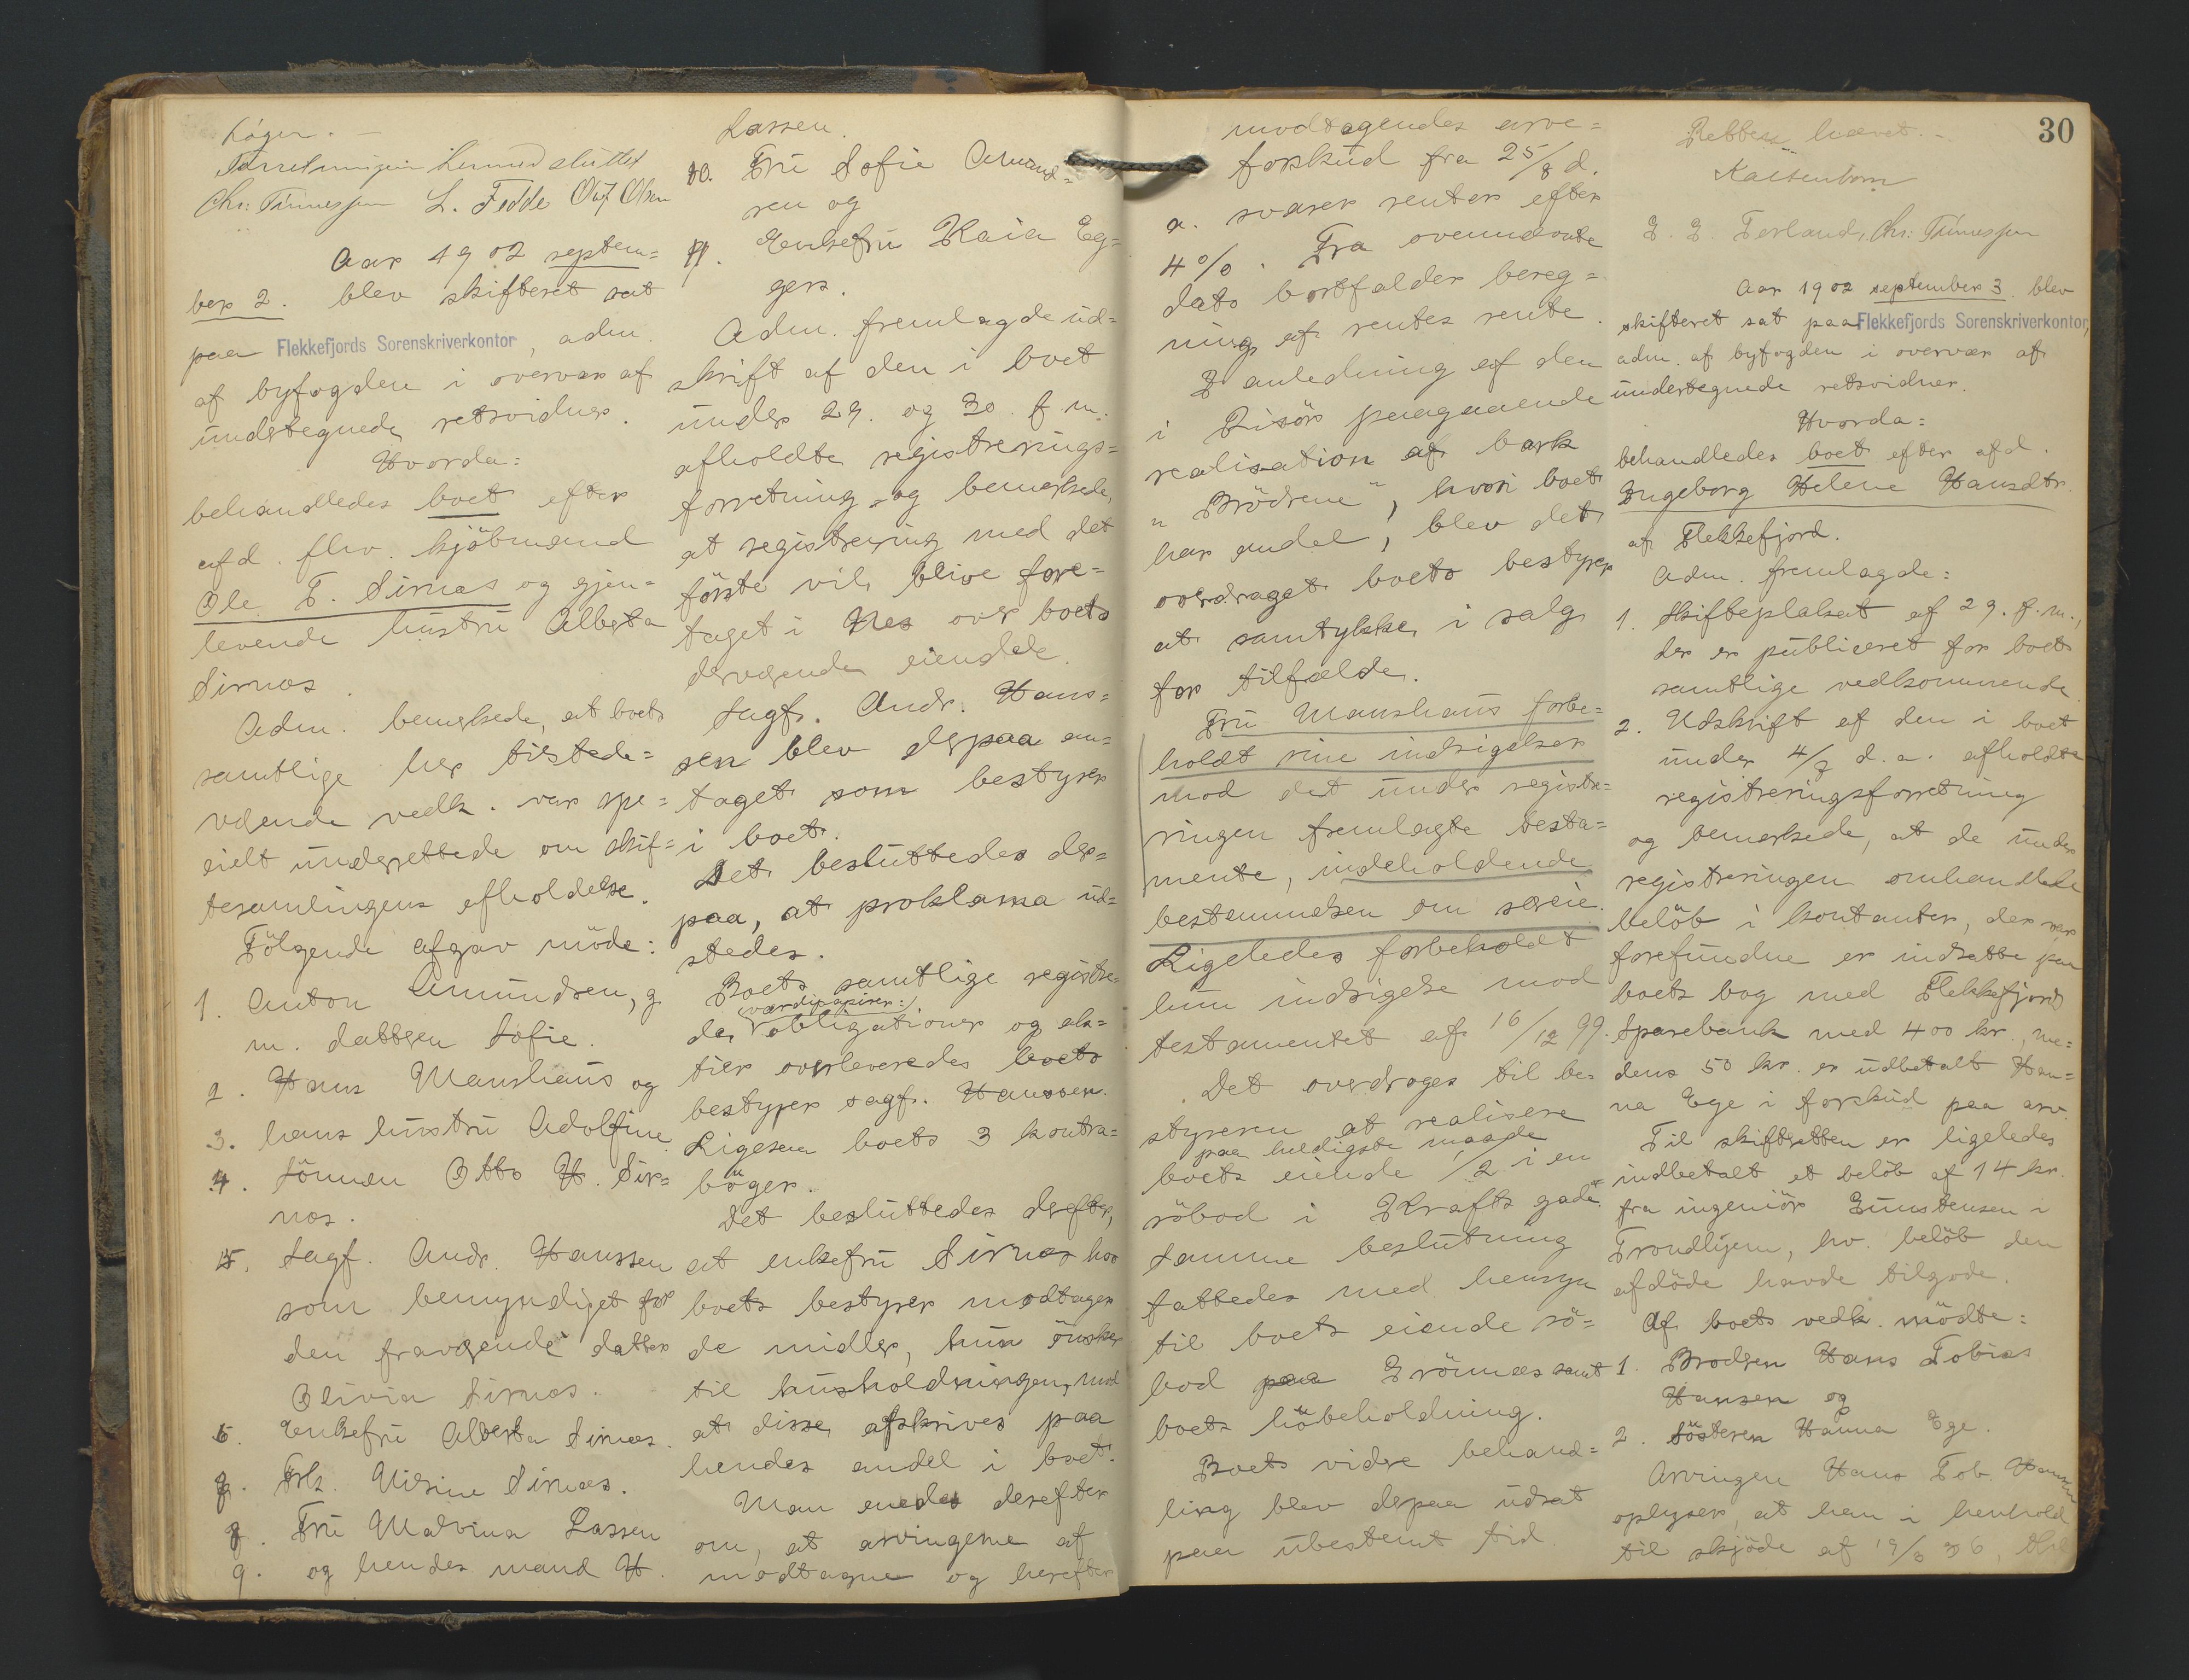 bøger. —
Forretningen hermed sluttet
Chr: Tønnessen L. Fedde Olaf Olsen
Aar 1902 septem=
ber 2. blev skifteret sat
paa Flekkefjords Sorenskriverkontor, adm.
af byfogden i overvær af
undertegnede retsvidner.
Hvorda:
behandledes boet efter
afd. fhv. kjöbmand
Ole T. Sirnæs og gjen=
levende hustru Alberta
Sirnæs.
Adm. bemerkede, at boets
samtlige her tilstede=
værende vedk. var spe=
cielt underrettede om skif=
tesamlingens afholdelse.
Fölgende afgav möde:
1. Anton Amundsen, g.
m. datteren Sofie.
2. Hans Manshaus og
3. hans hustru Adolfine
4. Sönnen Otto H. Sir=
næs.
5. Sagf. Andr. Hanssen
som bemyndiget for
den fraværende datter
Olivia Sirnæs.
6. Enkefru Alberta Sirnæs.
7. Frk. Sirnæs.
8. Fru Malvina Lassen
9. og hendes mand H.
Lassen.
10. Fru Sofie Amund=
sen og
11. Enkefru Kaia Eg=
gers.
Adm. fremlagde ud=
skrift af den i boet
under 29. og 30. f. m.
afholdte registrerings=
forretning og bemerkede,
at registrering med det
förste vil blive fore=
taget i Nes over boets
derværende eiendele.
Sagf. Andr. Hans=
sen blev derpaa an=
taget som bestyrer
i boet.
Det besluttedes der=
paa, at proklama ud=
stedes.
Boets samtlige registre=
værdipapirer:
de, obligationer og ak=
tier overleveredes boets
bestyrer sagf. Hanssen.
Ligesaa boets 3 kontra=
böger.
Det besluttedes derefter,
at enkefru Sirnæs hos
boets bestyrer modtager
de midler, hun önsker
til husholdningen, mod
at disse afskrives paa
hendes andel i boet.
Man enedes derefter
om, at arvingerne af
modtagne og herefter
modtagendes arve=
forskud fra 25/8 d.
a. svarer renter efter
4 %. Fra ovennævnte
dato bortfalder bereg=
ning af rentes rente.
I anledning af den
i Risör paagaaende
realisation af bark
"Brödrene", hvori boet
har andel, blev det
overdraget boets bestyrer
at samtykke i salg
for tilfælde.
Fru Manshaus forbe=
holdt sine indsigelser
mod det under registre=
ringen fremlagte testa=
mente, indeholdende
bestemmelsen om særeie.
Ligeledes forbeholdt
hun indsigelse mod
testamentet af 16/12 99.
Det overdroges til be=
styreren at realisere
paa heldigste maade
boets eiende 1/2 i en
söbod i Krafts gade.
Samme beslutning
fattedes med hensyn
til boets eiende sö=
bod paa Grönnes samt
boets höbeholdning.
Boets videre behand=
ling blev derpaa udsat
paa ubestemt tid.
30
Retten hævet. –
Kaltenborn
Z. Z. Terland, Chr: Tønnessen
Aar 1902 september 3. blev
skifteret sat paa Flekkefjords Sorenskriverkontor,
adm. af byfogden i overvær af
undertegnede retsvidner.
Hvorda:
behandledes boet efter afd.
Ingeborg Helene Hansdtr.
af Flekkefjord.
Adm. fremlagde:
1. Skifteplakat af 29. f. m.,
der er publiceret for boets
samtlige vedkommende.
2. Udskrift af den i boet
under 4/7 d. a. afholdte
registreringsforretning
og bemerkede, at de under
registreringen omhandlede
belöb i kontanter, der var
forefundne er indsatte paa
boets bog med Flekkefjords
Sparebank med 400 kr., me=
dens 50 kr. er udbetalt Han=
na Ege i forskud paa arv.
Til skifteretten er ligeledes
indbetalt et belöb af 14 kr.
fra ingeniör Gunstensen i
Trondhjem, hv. belöb den
afdöde havde tilgode.
Af boets vedk. mödte:
1. Broderen Hans Tobias
Hansen og
2. Sösteren Hanna Ege.
Arvingen Hans Tob. Hansen
oplyser, at han i henhold
til skjöde af 19/3 36,